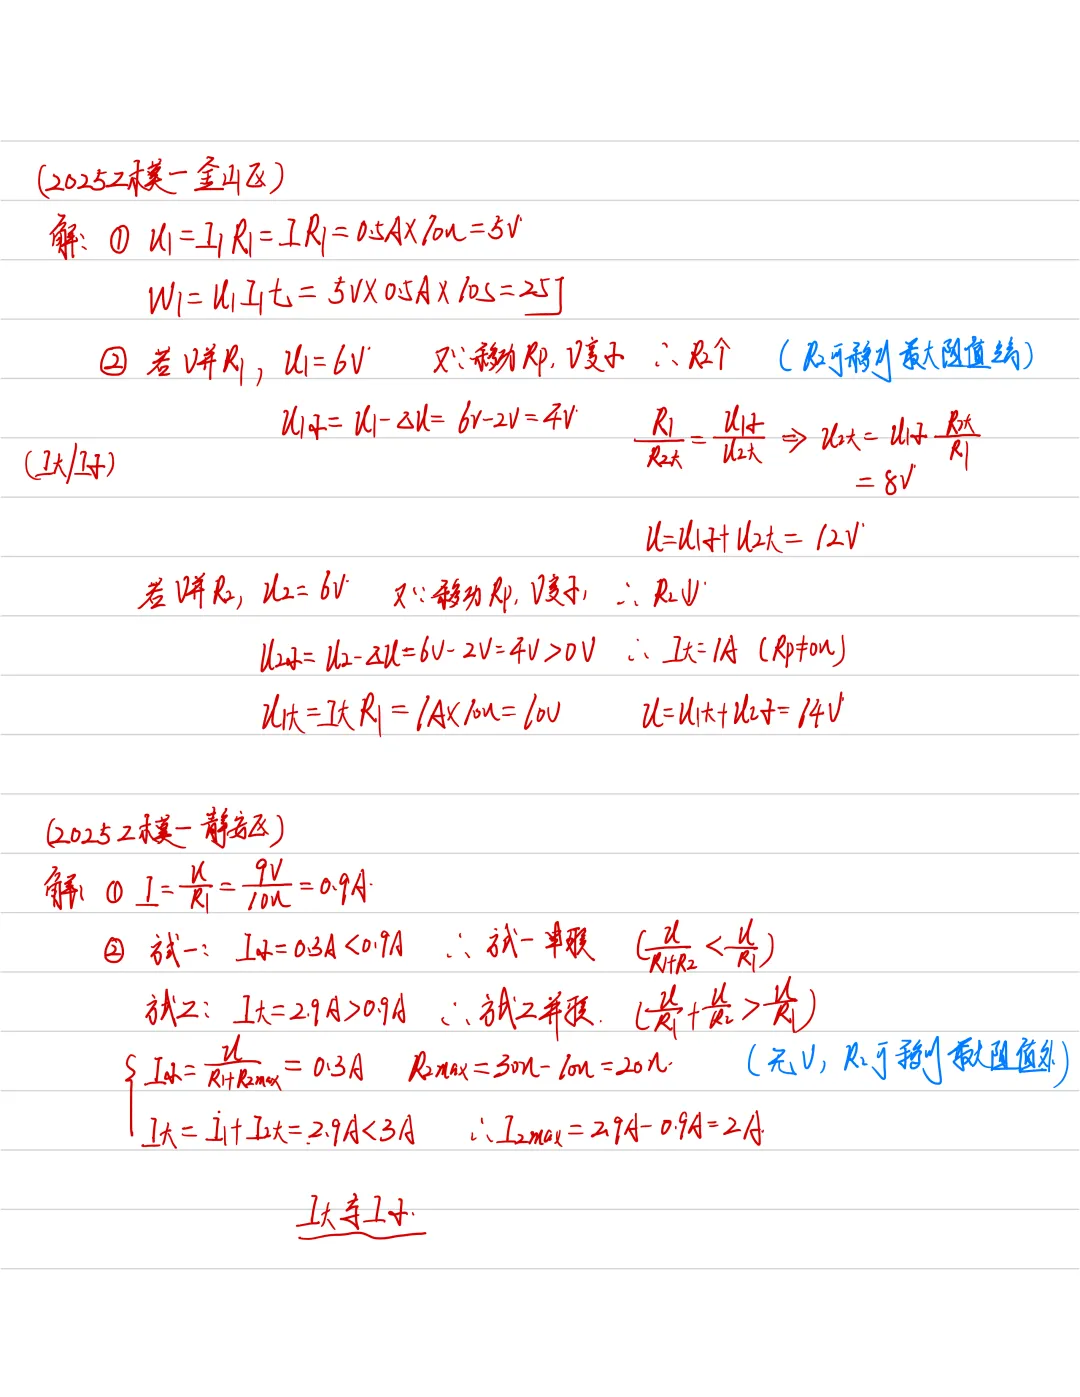 (2025二模一金山区)
解: ① U₁=I₁R₁=IR₁=0.5A×10Ω=5V
W₁=U₁I₁t=5V×0.5A×10s=25J
② 若V并R₁, U₁=6V 又∵移动Rp, V变小 ∴R₂个 (R₂可移到最大阻值结)
U₁小=U₁-ΔU=6V-2V=4V R₁/R₂大=U₁小/U₂大 ⇒ U₂大=U₁小 R₂大/R₁
(I大/I小) =8V
U=U₁小+U₂大=12V
若V并R₂, U₂=6V 又∵移动Rp, V变小, ∴R₂↓
U₂小=U₂-ΔU=6V-2V=4V>0V ∴I大=1A (Rp≠0Ω)
U₁大=I大R₁=1A×10Ω=10V U=U₁大+U₂小=14V
(2025二模一静安区)
解: ① I=U/R₁=9V/10Ω=0.9A.
② 方式一: I小=0.3A<0.9A ∴方式一串联 (U/R₁+R₂<U/R₁)
方式二: I大=2.9A>0.9A ∴方式二并联. (U/R₁+U/R₂>U/R₁)
{ I小=U/R₁+R₂max=0.3A R₂max=30Ω-10Ω=20Ω. (无V, R₂可移到最大阻值处)
I大=I₁+I₂大=2.9A<3A ∴I₂max=2.9A-0.9A=2A.
I大与I小.